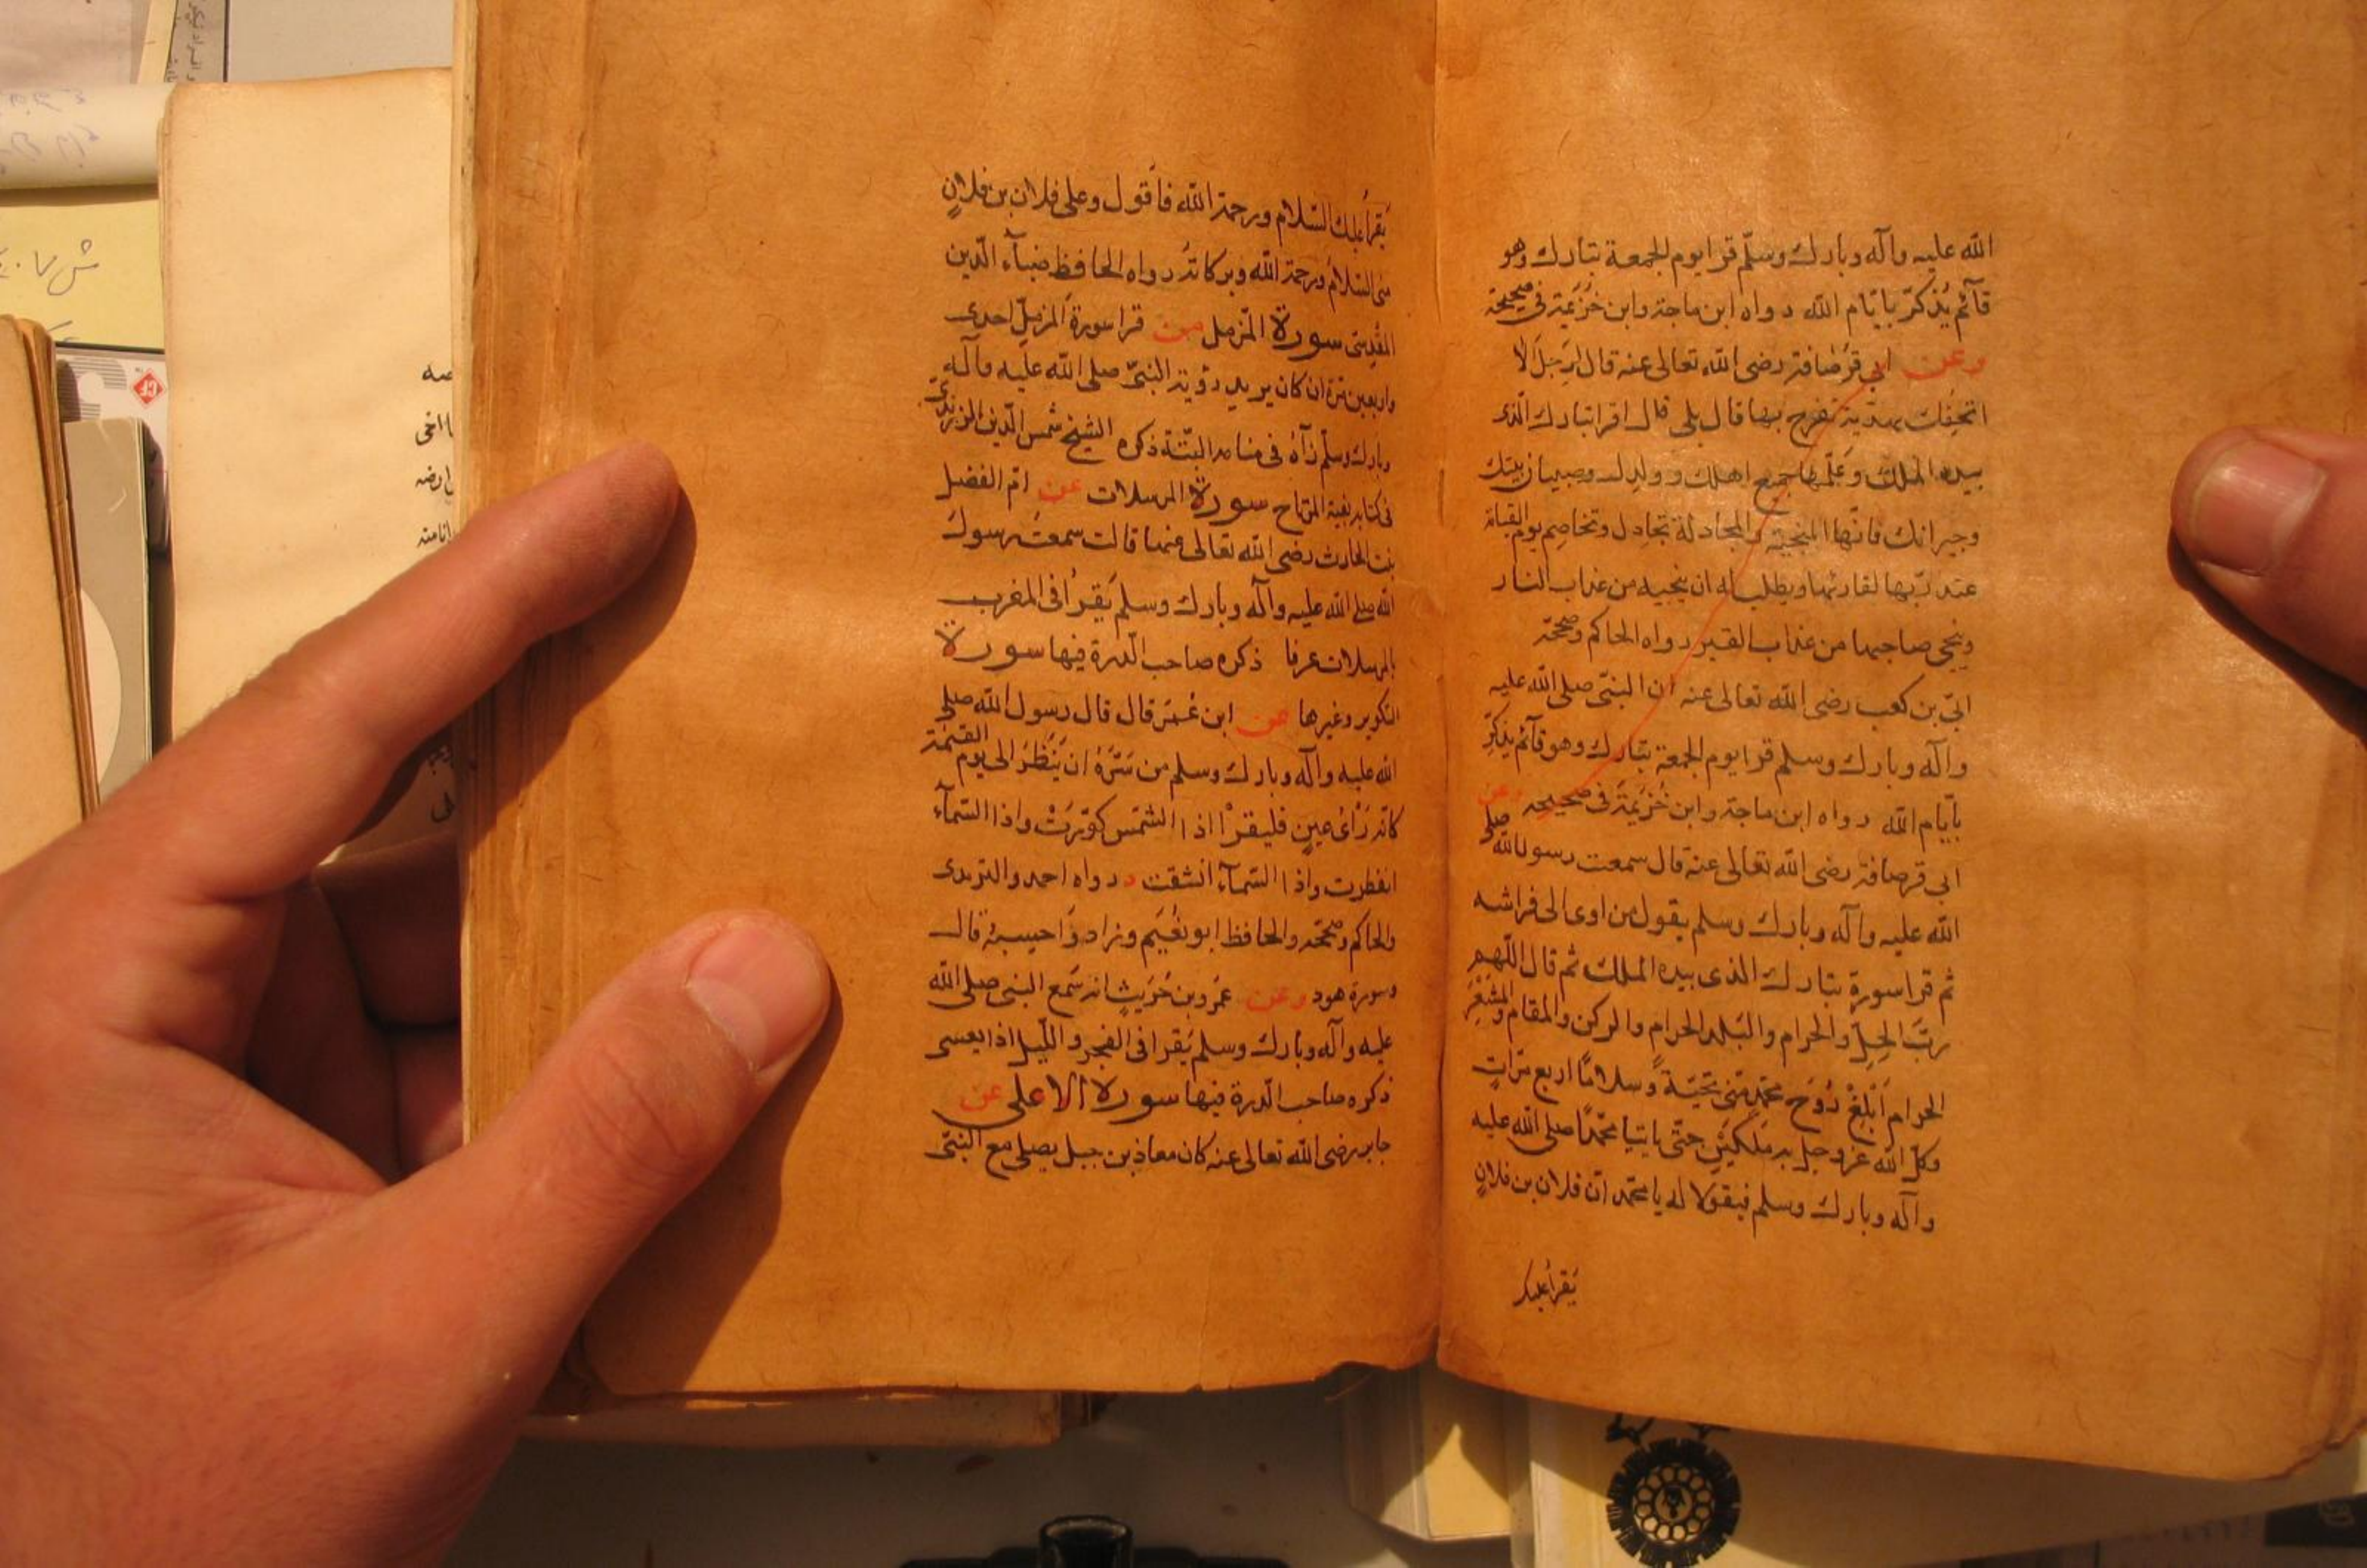 الله عليه وآله وبارك وسلّم قرا يوم الجمعة تبارك وهو
قآئم يُذكّر بايّام الله رواه ابن ماجة وابن خُزَيمَة فى صحيحة
وعن ابى قرُصافة رضى الله تعالى عنه قال لِرَجل الا
اتحِفُك بهدّية تفرح بها قال بلى قال اقرا تبارك الّذى
بيده الملك وعَلّمها جميع اهلك وولدك وصبيان بيتك
وجيرانك فانّها المنجية والمجادلة تجادل وتخاصم يوم القيامة
عند ربّها لقارئها ويطلب له ان ينجيه من عذاب النار
وينجى صاحبها من عذاب القبر رواه الحاكم وصححّه
ابىّ بن كعب رضى الله تعالى عنه ان النبىّ صلى الله عليه
وآله وبارك وسلم قرا يوم الجمعة تبارك وهو قآئم يذكّر
بايّام الله رواه ابن ماجة وابن خُزَيمَة فى صحيحه وعن
ابى قرصافة رضى الله تعالى عنه قال سمعت رسول الله صلى
الله عليه وآله وبارك وسلم يقول من اوى الى فراشه
ثم قرا سورة تبارك الذى بيده الملك ثم قال اللّهم
ربّ الحِلّ والحرام والبَلد الحرام والركن والمقام والمشعَر
الحرام اَبْلِغْ رُوحَ محمّدٍ منّى تحيّةً وسلامًا اربع مرّاتٍ
وكّل الله عزوجل به مَلَكَيَنِ حتّى ياتيا محمّدًا صلى الله عليه
وآله وبارك وسلم فيقولا له يا محمّد انّ فلان بن فلانٍ
يَقرأعليك
يَقرأ عليك السّلام ورحمة الله فاَقول وعلى فلان بن فلانٍ
منى السّلامُ ورحمة الله وبركاتُه رواه الحافظ ضيآء الّدين
المقدِسى سورة المزّمل من قرا سورة المزمّل احدى
واربعين مرّة ان كان يريد رؤية النبىّ صلى الله عليه وآله
وبارك وسلّم رَآهُ فى منامه البتّة ذكره الشيخ شمس الّدين
فى كتابه سورة المرسلات عن امّ الفضل
بنت الحارث رضى الله تعالى عنها قالت سمعت رسول
الله صلى الله عليه وآله وبارك وسلم يَقرُا فى المغرب
بالمرسلات عرفا ذكره صاحب الّدرة فيها سورة
التكوير وغيرها عن ابن عُمَر قال قال رسول الله صلى
الله عليه وآله وبارك وسلم من سَرّهُ ان يَنْظُرَ الى يوم القيمة
كانّه رَأىُ عينٍ فليقرْا اذا الشّمس كوّرَتْ واذا السّمآء
انفطرت واذا السّمآء انشقت رواه احمد والترمذى
والحاكم وصححّه والحافظ ابو نُعَيَم وزاد وَاحسبهُ قال
وسورة هود وعن عَمروبن حُرَيثٍ انه سَمع النبى صلى الله
عليه وآله وبارك وسلم يَقرا فى الفجر والّليل اذا يعسى
ذكره صاحب الّدرة فيها سورة الاعلى عن
جابر رضى الله تعالى عنه كان معاذ بن جبل يصلى مع النبىّ